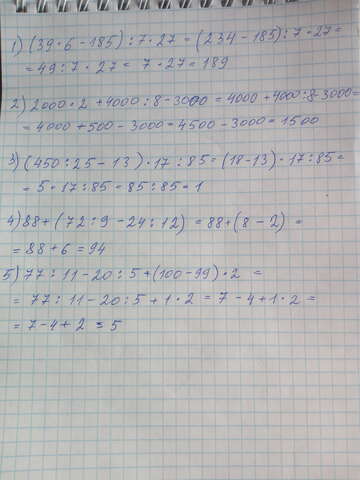 1) (39·6-185):7·27=(234-185):7·27=
=49:7·27=7·27=189
2) 2000·2+4000:8-3000=4000+4000:8-3000=
=4000+500-3000=4500-3000=1500
3) (450:25-13)·17:85=(18-13)·17:85=
=5·17:85=85:85=1
4) 88+(72:9-24:12)=88+(8-2)=
=88+6=94
5) 77:11-20:5+(100-99)·2=
=77:11-20:5+1·2=7-4+1·2=
=7-4+2=5